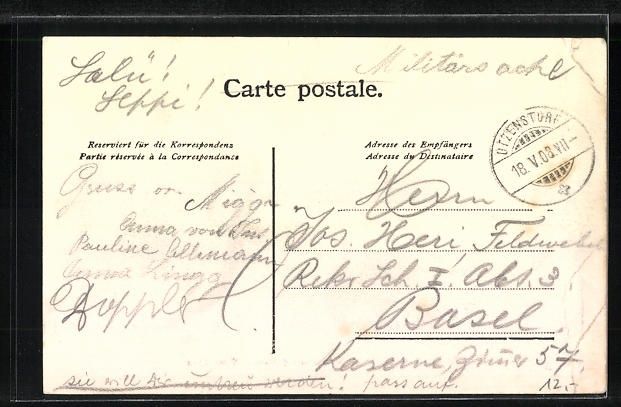 Salü!
Seppi!
Militärsache
Carte postale.
UTZENSTORF
18.V.08.VII-
Reserviert für die Korrespondenz
Partie réservée à la Correspondance
Adresse des Empfängers
Adresse du Destinataire
Gruss von Miggi
Anna von
Pauline Allemann
Anna Lingg
Doppler
Herrn
Jos. Heri Feldwebel
Rekr. Sch. I. Abt. 3.
Basel
Kaserne, Zimer 57.
sie will dir untreu werden! pass auf.
12.-